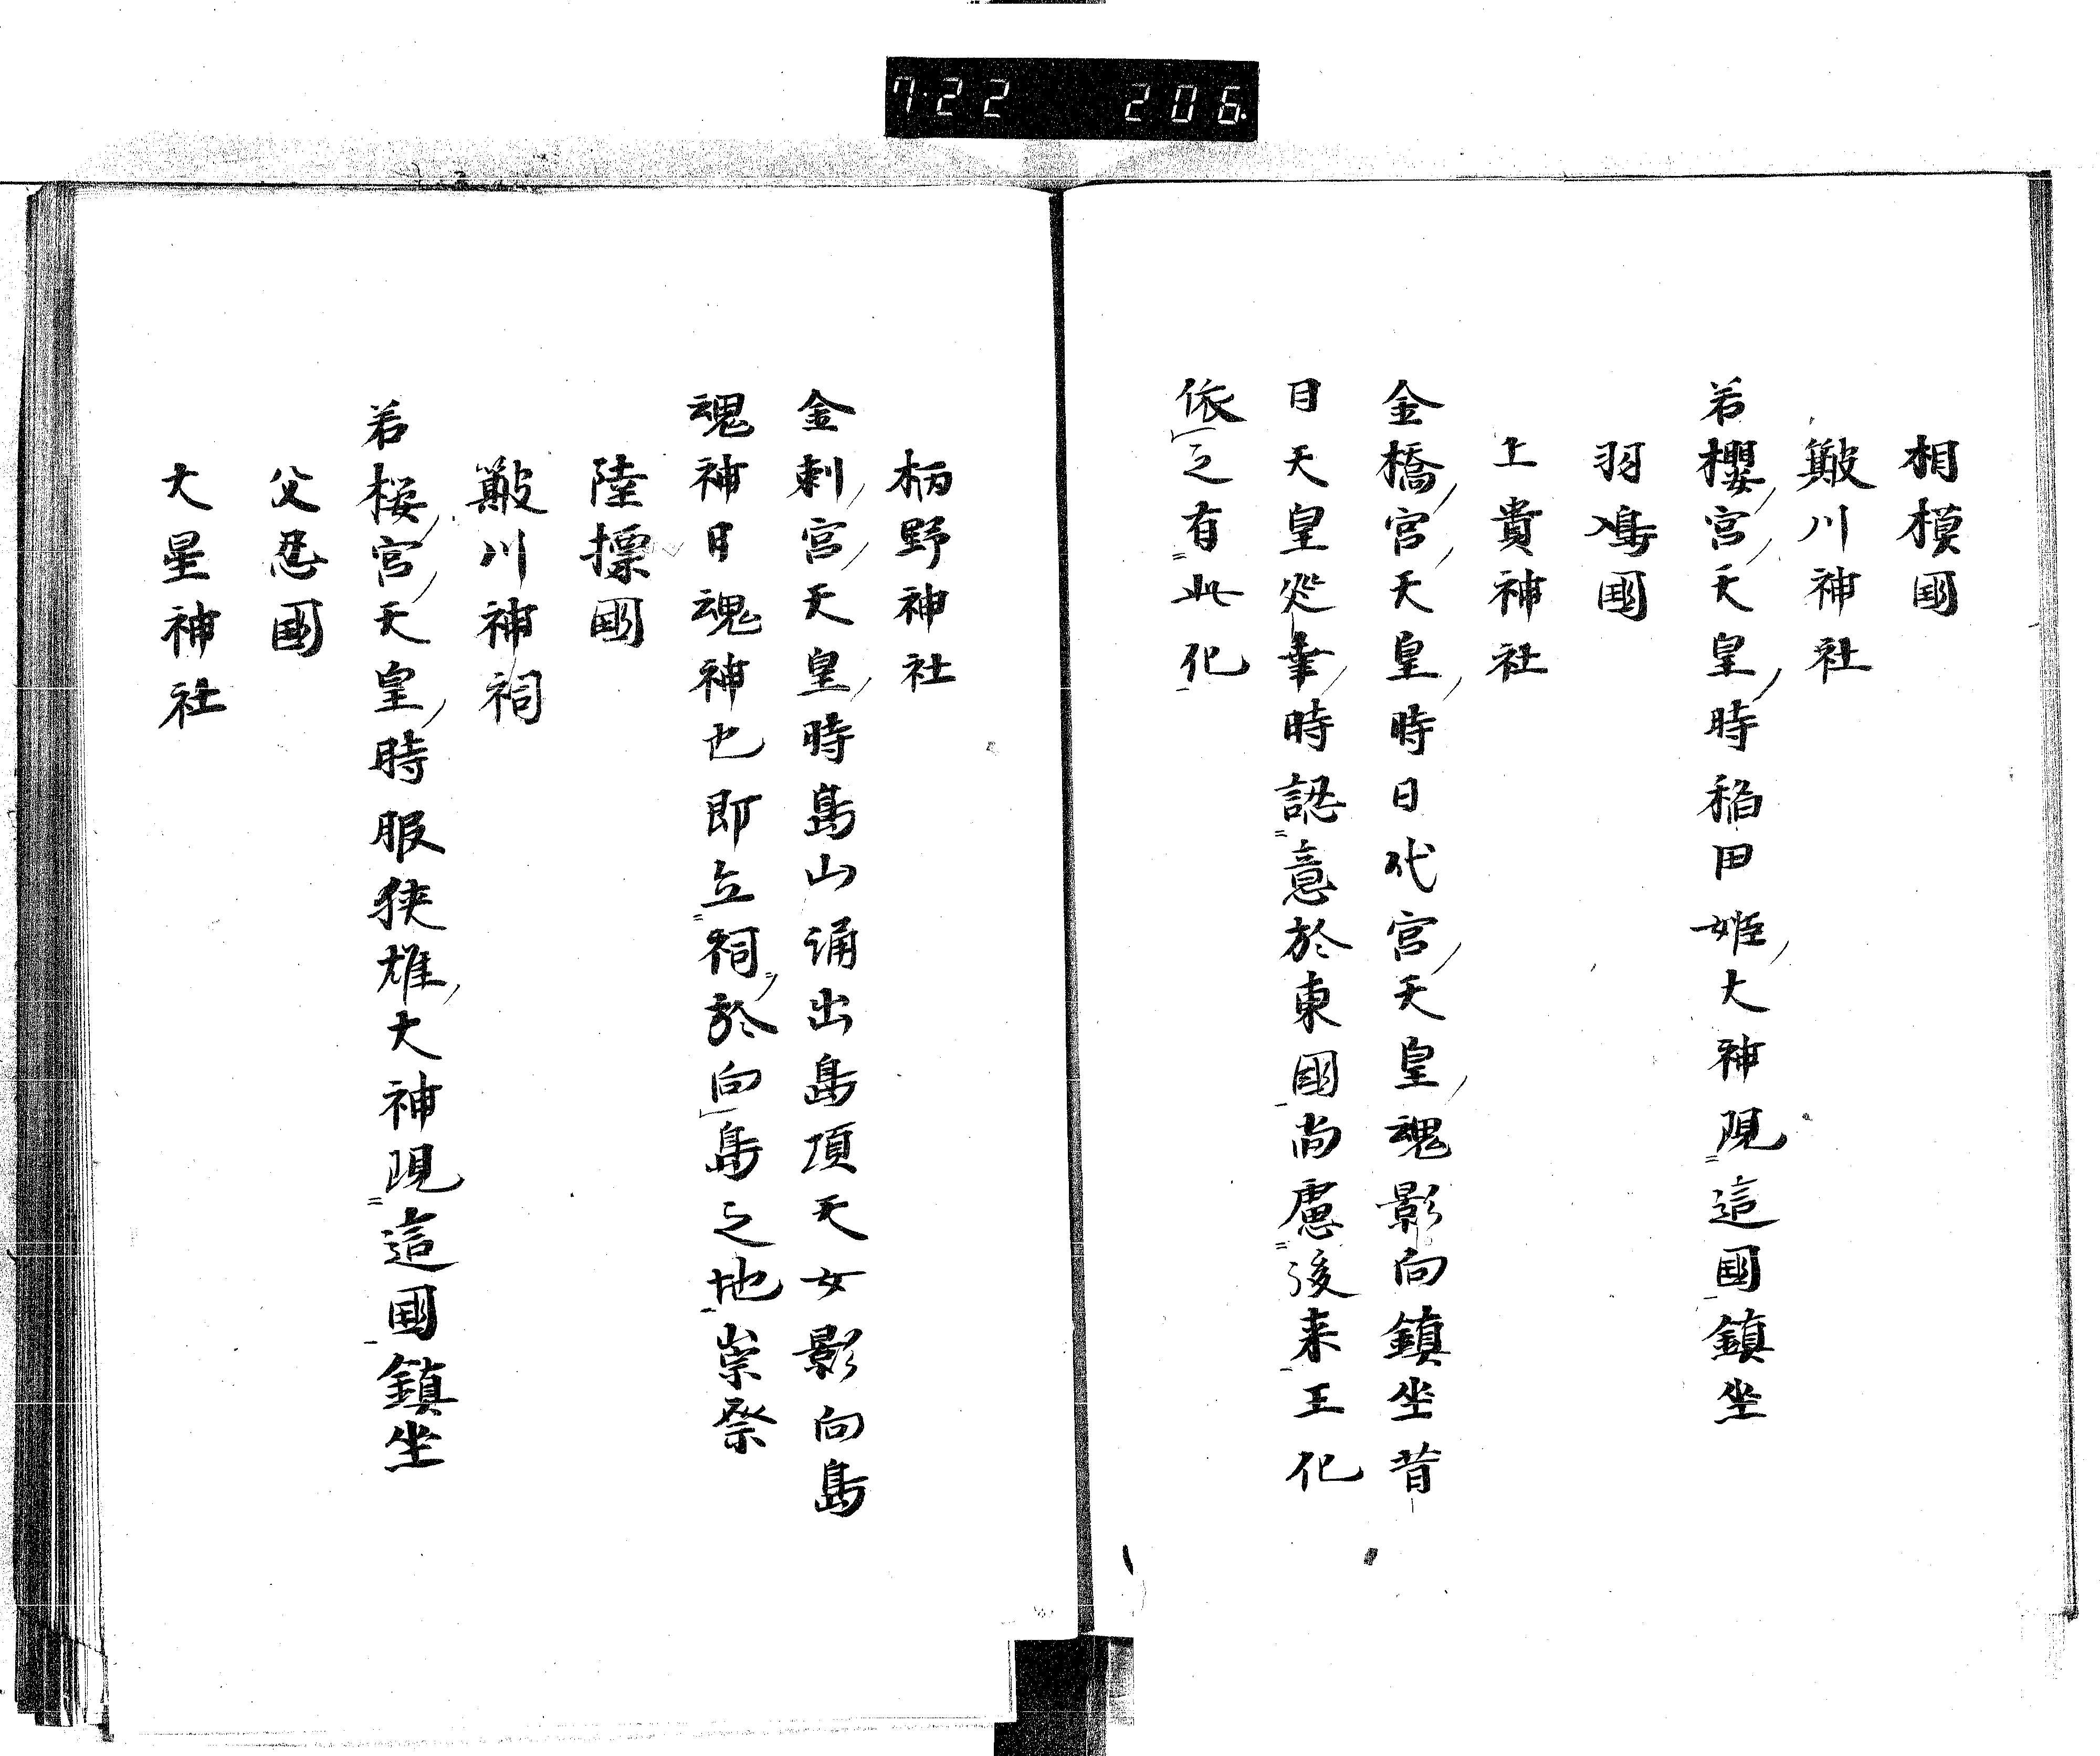 7.22 206.
相模國
簸川神社
若櫻宮天皇時稻田姫大神現這國鎮坐
羽鳥國
上貴神社
金橋宮天皇時日代宮天皇魂影向鎮坐昔
日天皇巡幸時認意於東國尚慮後来王化
依之有此化
柄野神社
金刺宮天皇時島山涌出島頂天女影向島
魂神日魂神也即立祠於向島之地崇祭
陸摽國
簸川神祠
若桜宮天皇時服狭雄大神現這國鎮坐
父忍國
大星神社